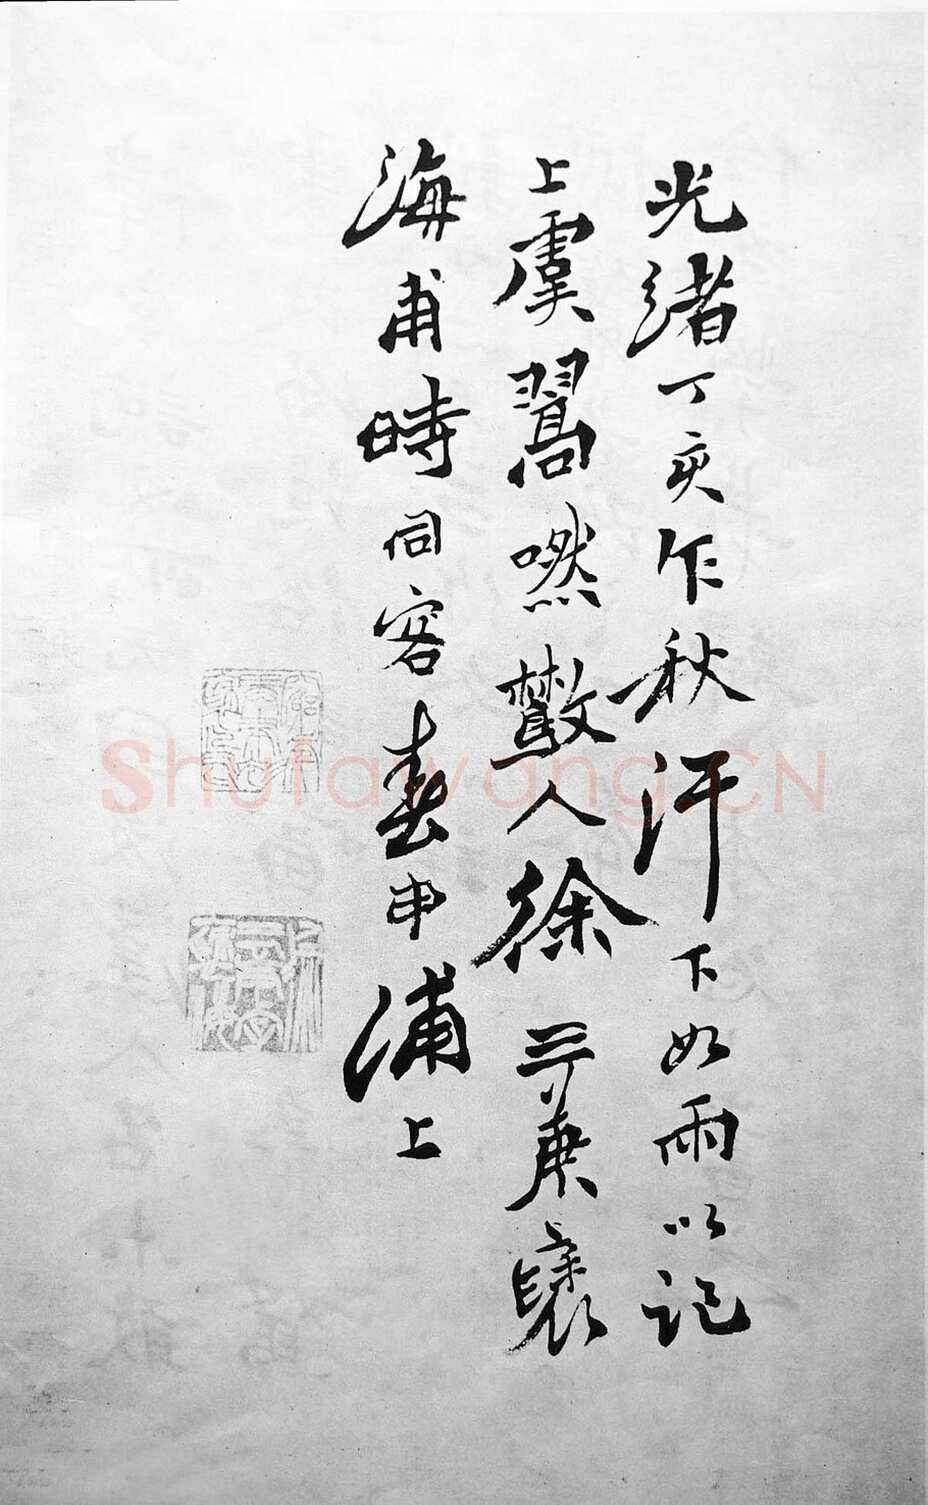 光緒丁亥乍秋汗下如雨以記
上虞翯嘫人徐三庚褎
海甫時同客春申浦上
Shufawang.CN